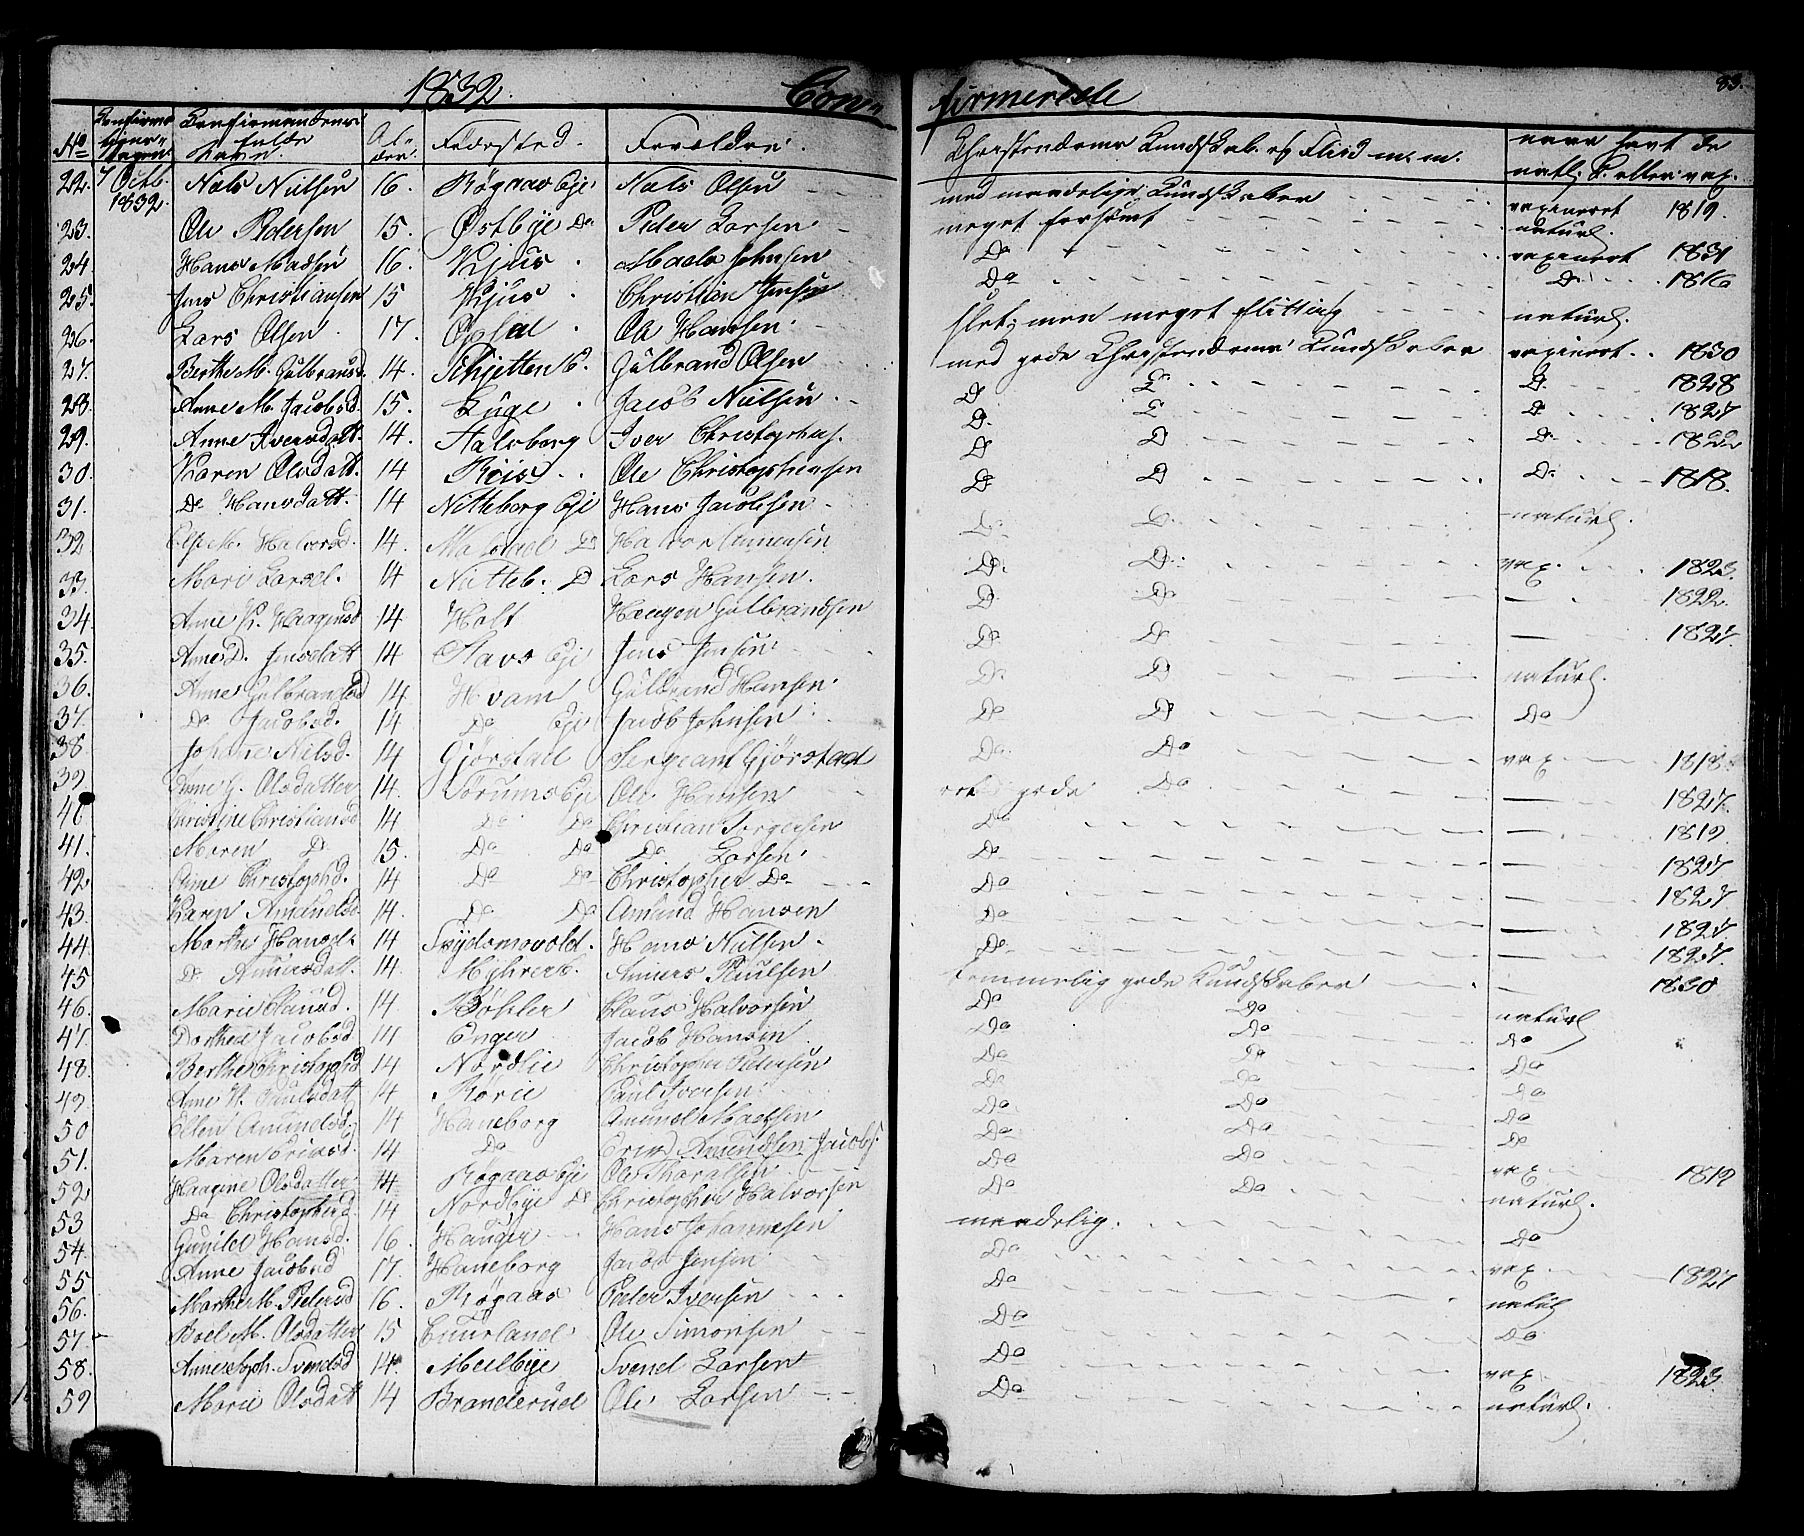 1832. Con=
firmerede
83.
No Confirmationsdagen. Confirmandens fulde Navn. Alder. Fødested. Forældre.
Christendoms Kundskab og Fliid m. m. have havt de natl: K. eller vax.
22. 7 Octb. 1832. Niels Nielsen 16. Røgaas Eje Niels Olsen med maadelige Kundskaber vaxineret 1819.
23. Ole Pedersen 15. Østbye Do Peder Larsen meget forsømt naturl.
24 Hans Madsen 16. Kjus Mads Johnsen Do vaxineret 1831
25. Jens Christiansen 15 Kjus Christian Jensen Do Do 1816
26. Lars Olsen 17. Opsal Ole Hansen slet, men meget flittig naturl.
27. Berthe M. Gulbransd. 14. Schjetten E. Gulbrand Olsen med gode Christendoms Kundskaber vaxineret 1830
28. Anne M. Jacobsd. 15. Jacob Nielsen D. D. D. 1828
29. Anne Iversdatt. 14. Halsborg Iver Christophers. D. D. D. 1827
30. Karen Olsdatt. 14 Ole Christophersen D D D. 1822
31. Do Hansdatt. 14 Nitteborg Eje Hans Jacobsen D D D. 1818.
32 Halvorsd. 14. Do Halvor D. D. naturl.
33. Mari Larsd. 14 Nitteb. D Lars Hansen. D. D. vax. 1823.
34. Anne K. Haagensd 14 Holt Haagen Gulbrandsen D. Do — 1822.
35. Anne D. Jensdatt 14 Stavs Eje Jens Jensen Do Do — 1827.
36. Anne Gulbransd 14. Hvam Gulbrand Hansen D. D naturl.
37. Do Jacobsd. 14 Do Eje Jacob Johnsen Do D Do
38. Johane Nilsd. 14 Gjørstad Sergeant Gjørstad Do Do vax 1818
39. Anne G. Olsdatter 14. Sørums Eje Ole Hansen ret gode Do — 1827.
40 Christine Christiansd 14 Do Do Christian Jørgensen Do — 1819
41. Maren D. 15. Do Do Do Larsen Do — 1827
42. Anne Christophd. 14 Do Do Christopher Do Do — 1827
43. Karen Amundsd 14. Do Do Amund Hansen Do — 1827
44. Marthe Hansd. 14 Hans Nielsen Do — 1827.
45 D. Andersd. 14. Anders Paulsen temmelig gode Kundskaber — 1830
46. Marie Clausd. 14. Bøhler Claus Halvorsen Do Do naturl
47. Dorthea Jacobsd 14 Enger Jacob Hansen Do Do Do
48. Berthe Christophd 14 Nordlie Christopher Pedersen Do Do Do
49. Anne K. Paulsdatt 14 Rørie Paul Iversen Do Do Do
50 Ellen Amundsd. 14 Haneborg Amund Madsen Do Do Do
51. Maren 14 Do Amundsen Jacobs. Do Do Do
52. Haagene Olsdatter 14 Røgaas Eje Ole Do Do vax 1819
53 Do Christophersd. 14 Nordbye Do Christopher Halvorsen Do Do naturl.
54. Gunild Hansd. 16. Hauger Hans Johannesen maadelig. Do
55 Anne Jacobsd 17. Haneborg Jacob Jensen Do vax 1827
56. Marthe M. Pedersd 16. Røgaas Peder Iversen Do naturl
57. Boel M. Olsdatter 15 Cuurland Ole Simonsen Do Do
58. Anne Soph. Svendsd 14 Melbye Svend Larsen Do vax 1823.
59 Marie Olsdatt 14 Branderud Ole Larsen Do naturl.